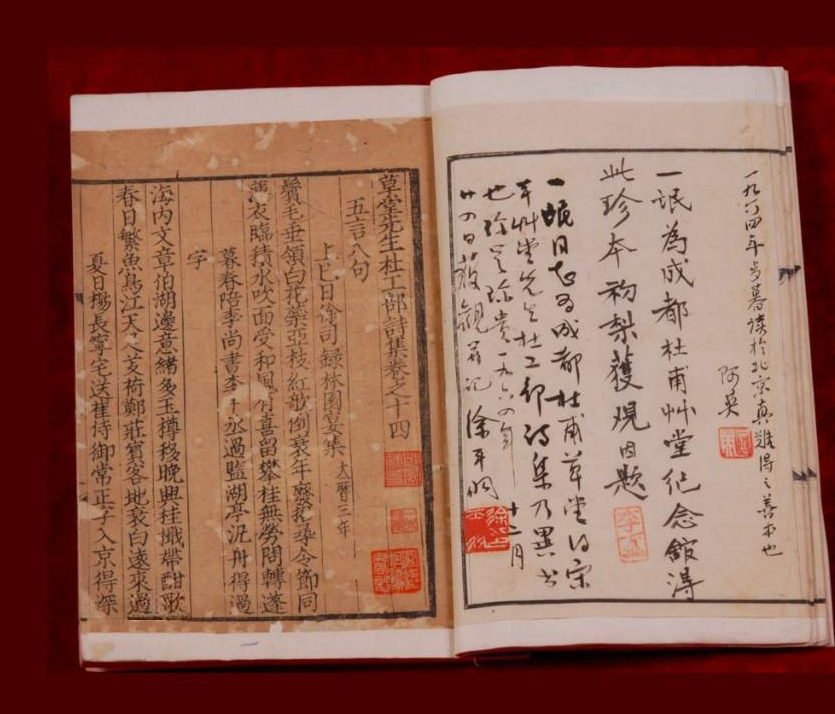 一九六四年岁暮读於北京真难得之善本也
阿英
一氓為成都杜甫艸堂纪念舘得
此珍本初梨獲观因题
一氓同志为成都杜甫草堂得宋
本艸堂先生杜工部诗集乃異书
也珍贵一九六四年十二月
廿四日获觀并记徐平羽
草堂先生杜工部詩集卷之十四
五言八句
上巳日徐司録林園宴集 大曆三年
鬢毛垂領白花蘂亞枝紅歌倒衰年廢招尋令節同
薄衣臨積水吹面受和風有喜留攀桂無勞問轉蓬
暮春陪李尚書李中丞過監湖亭汎舟得過
字
海内文章伯湖邊意緒多玉樽移晚興桂檝帶酣歌
春日繁魚鳥江天足芰荷鄭莊賓客地衰白遠來過
夏日揚長寧宅送崔侍御常正字入京得深